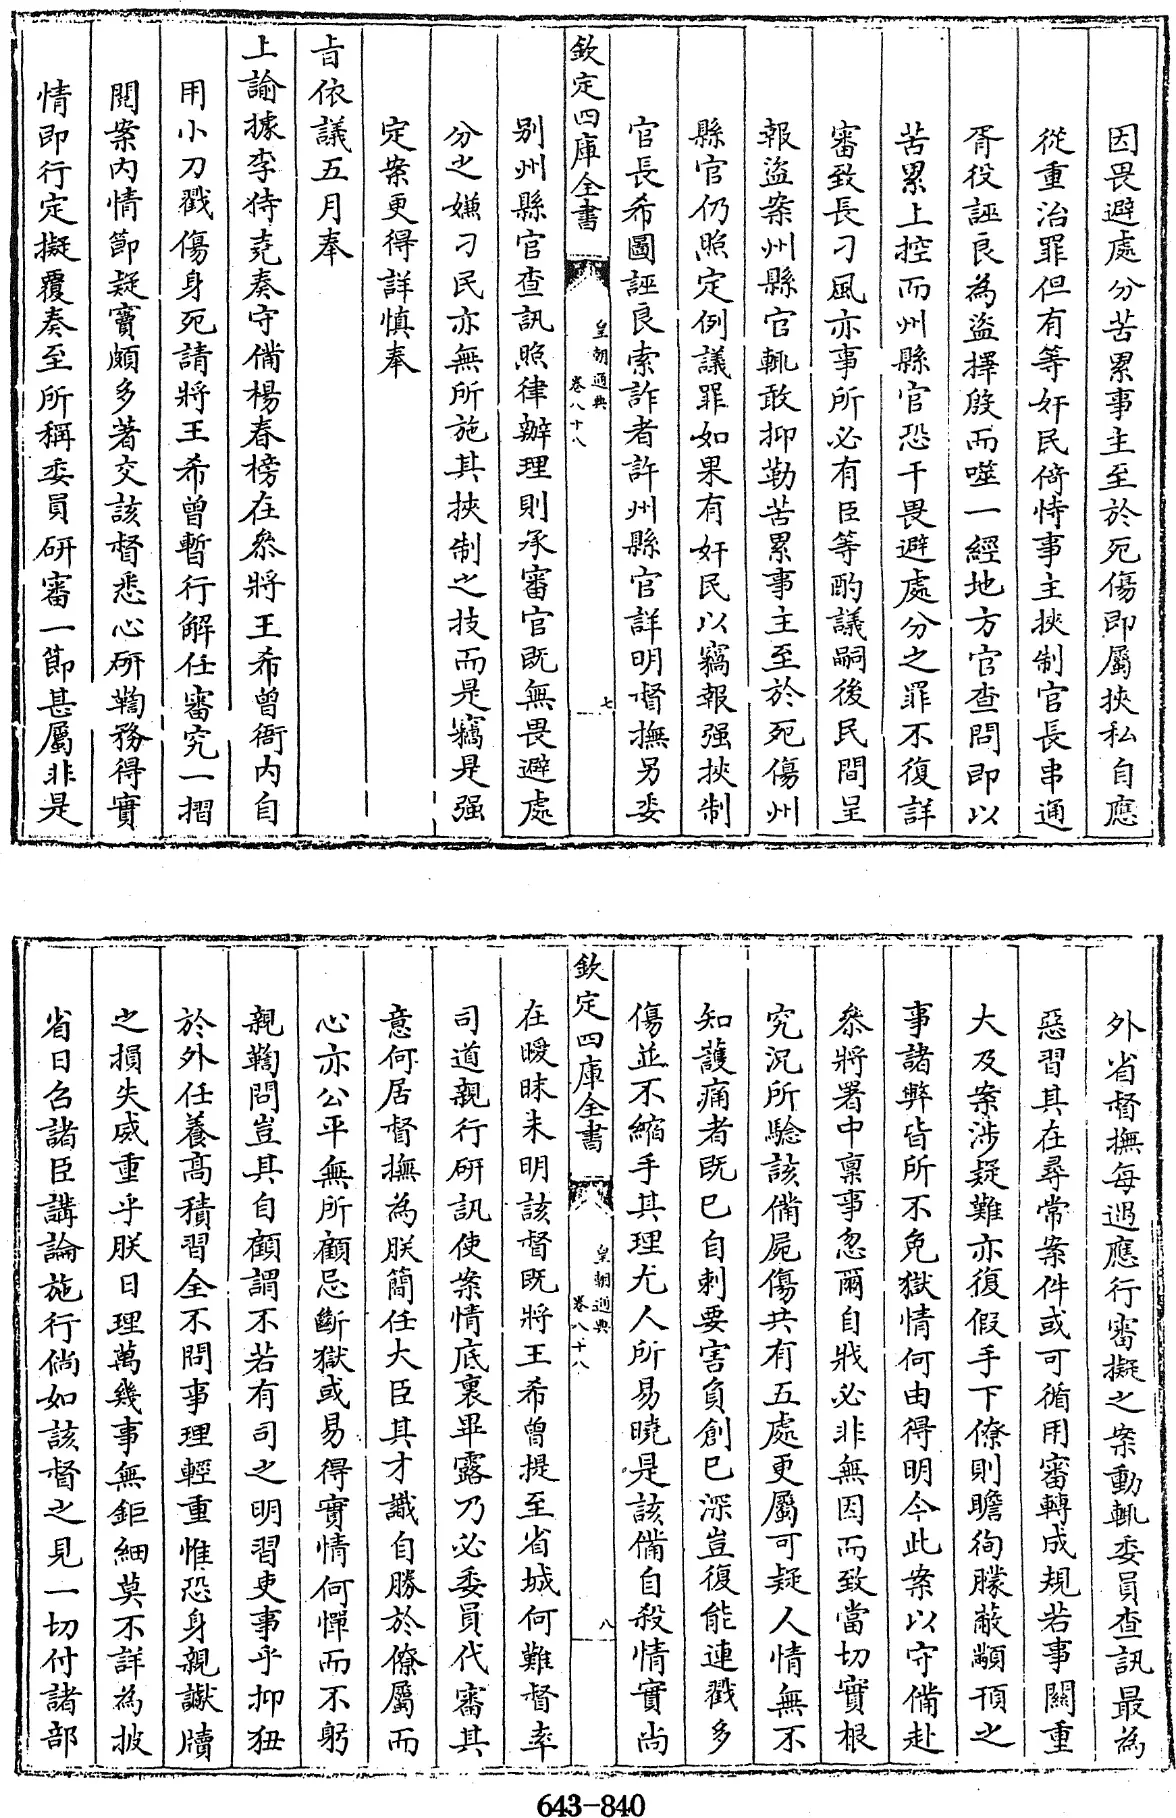 因畏避處分苦累事主至於死傷即屬挾私自應
從重治罪但有等奸民倚恃事主挾制官長串通
胥役誣良為盜擇殷而噬一經地方官查問即以
苦累上控而州縣官恐干畏避處分之罪不復詳
審致長刁風亦事所必有臣等酌議嗣後民間呈
報盜案州縣官輒敢抑勒苦累事主至於死傷州
縣官仍照定例議罪如果有奸民以竊報强挾制
官長希圖誣良索詐者許州縣官詳明督撫另委
欽定四庫全書
皇朝通典
卷八十八
七
别州縣官查訊照律辦理則承審官既無畏避處
分之嫌刁民亦無所施其挾制之技而是竊是强
定案更得詳慎奉
㫖依議五月奉
上諭據李侍堯奏守備楊春榜在叅將王希曾衙内自
用小刀戳傷身死請將王希曾暫行解任審究一摺
閱案内情節疑竇頗多著交該督悉心研鞫務得實
情即行定擬覆奏至所稱委員研審一節甚屬非是
外省督撫每遇應行審擬之案動輒委員查訊最為
惡習其在尋常案件或可循用審轉成規若事關重
大及案涉疑難亦復假手下僚則瞻徇朦蔽顢頇之
事諸弊皆所不免獄情何由得明今此案以守備赴
叅將署中禀事忽爾自戕必非無因而致當切實根
究況所驗該備屍傷共有五處更屬可疑人情無不
知護痛者既已自刺要害負創已深豈復能連戳多
傷並不縮手其理尤人所易曉是該備自殺情實尚
欽定四庫全書
皇朝通典
卷八十八
八
在曖昧未明該督既將王希曾提至省城何難督率
司道親行研訊使案情底裏畢露乃必委員代審其
意何居督撫為朕簡任大臣其才識自勝於僚屬而
心亦公平無所顧忌斷獄或易得實情何憚而不躬
親鞫問豈其自顧謂不若有司之明習吏事乎抑狃
於外任養髙積習全不問事理輕重惟恐身親讞牘
之損失威重乎朕日理萬幾事無鉅細莫不詳為披
省日召諸臣講論施行倘如該督之見一切付諸部
643-840